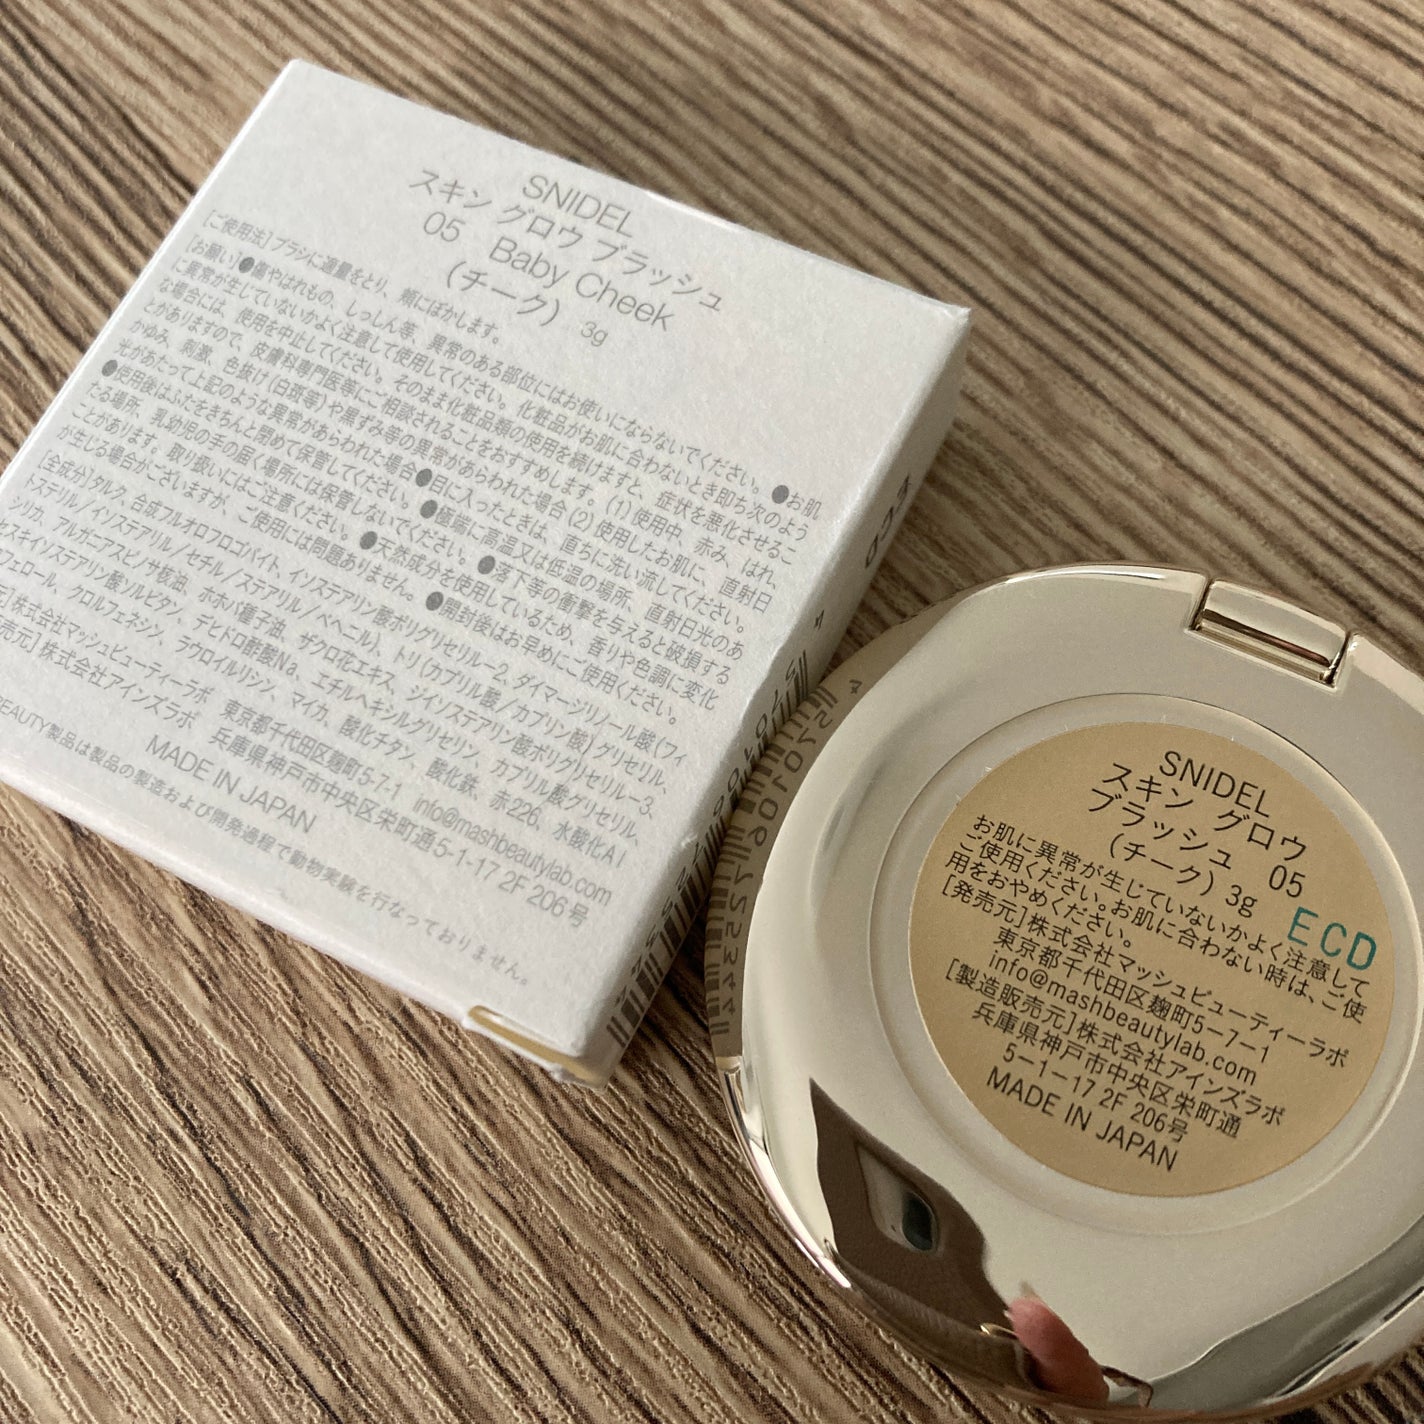 SNIDEL
スキン グロウ ブラッシュ
05 Baby Cheek
(チーク) 3g
[ご使用法]ブラシに適量をとり、頬にぼかします。
[お願い]●傷やはれもの、しっしん等、異常のある部位にはお使いにならないでください。●お肌
に異常が生じていないかよく注意して使用してください。化粧品がお肌に合わないとき即ち次のよう
な場合には、使用を中止してください。そのまま化粧品類の使用を続けますと、症状を悪化させるこ
とがありますので、皮膚科専門医等にご相談されることをおすすめします。(1)使用中、赤み、はれ、
かゆみ、刺激、色抜け(白斑等)や黒ずみ等の異常があらわれた場合(2)使用したお肌に、直射日
光があたって上記のような異常があらわれた場合●目に入ったときは、直ちに洗い流してください。
●使用後はふたをきちんと閉めて保管してください。●極端に高温又は低温の場所、直射日光のあ
たる場所、乳幼児の手の届く場所には保管しないでください。●落下等の衝撃を与えると破損する
ことがあります。取り扱いにはご注意ください。●天然成分を使用しているため、香りや色調に変化
が生じる場合がございますが、ご使用には問題ありません。●開封後はお早めにご使用ください。
[全成分]タルク、合成フルオロフロゴパイト、イソステアリン酸ポリグリセリル-2、ダイマージリノール酸(フィ
トステリル/イソステアリル/セチル/ステアリル/ベヘニル)、トリ(カプリル酸/カプリン酸)グリセリル、
シリカ、アルガニアスピノサ核油、ホホバ種子油、ザクロ花エキス、ジイソステアリン酸ポリグリセリル-3、
セスキイソステアリン酸ソルビタン、デヒドロ酢酸Na、エチルヘキシルグリセリン、カプリル酸グリセリル、
フェロール、クロルフェネシン、ラウロイルリシン、マイカ、酸化チタン、酸化鉄、赤226、水酸化Al
元]株式会社マッシュビューティーラボ 東京都千代田区麹町5-7-1 info@mashbeautylab.com
売元]株式会社アインズラボ 兵庫県神戸市中央区栄町通5-1-17 2F 206号
MADE IN JAPAN
BEAUTY製品は製品の製造および開発過程で動物実験を行なっておりません。
ECD
SNIDEL
スキン グロウ
ブラッシュ 05
(チーク) 3g
ECD
お肌に異常が生じていないかよく注意して
ご使用ください。お肌に合わない時は、ご使
用をおやめください。
[発売元]株式会社マッシュビューティーラボ
東京都千代田区麹町5-7-1
info@mashbeautylab.com
[製造販売元]株式会社アインズラボ
兵庫県神戸市中央区栄町通
5-1-17 2F 206号
MADE IN JAPAN